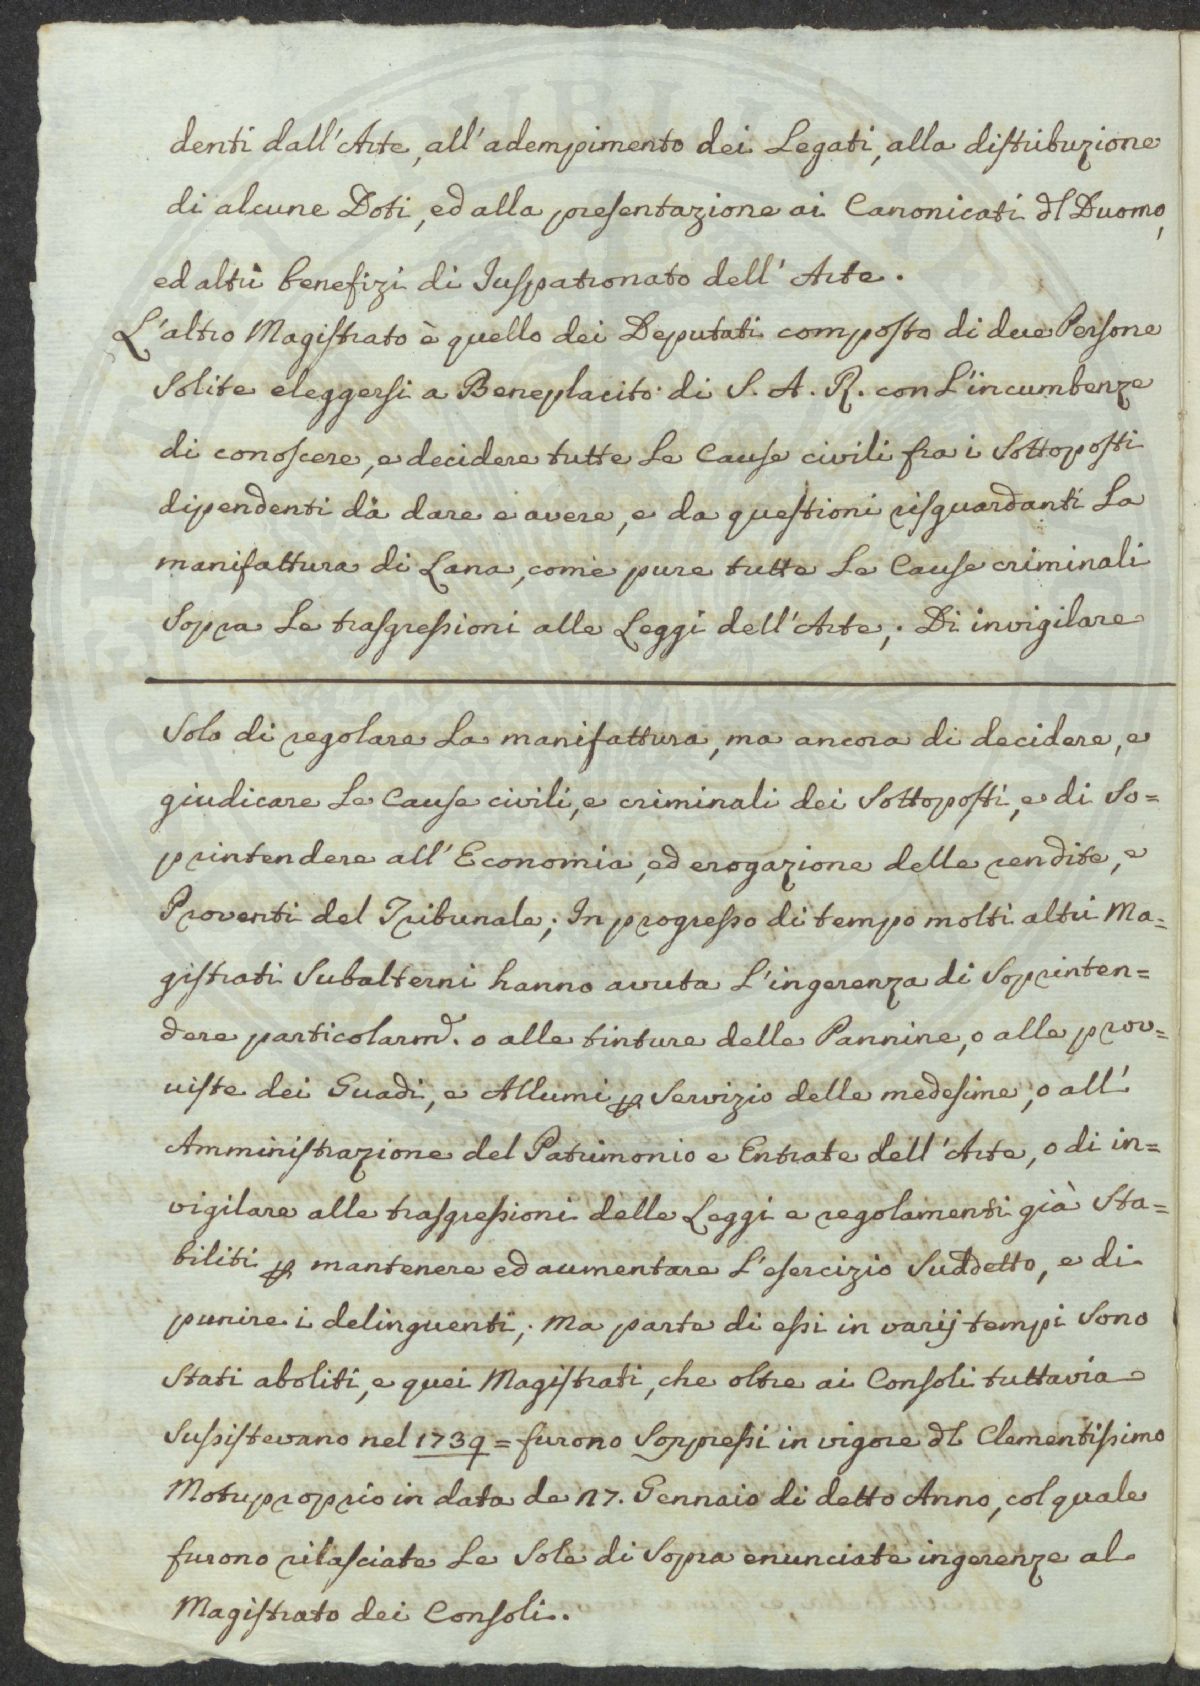 denti dall'Arte, all'adempimento dei Legati, alla distribuzione
di alcune Doti, ed alla presentazione ai Canonicati dl Duomo,
ed altri benefizi di Juspatronato dell'Arte.
L'altro Magistrato è quello dei Deputati composto di due Persone
Solite eleggersi a Beneplacito di S. A. R. con L'incumbenze
di conoscere, e decidere tutte Le Cause civili fra i Sottoposti
dipendenti da dare e avere, e da questioni risguardanti La
manifattura di Lana, come pure tutte Le Cause criminali
Sopra Le trasgressioni alle Leggi dell'Arte; Di invigilare
Solo di regolare La manifattura, ma ancora di decidere, e
giudicare Le Cause civili, e criminali dei Sottoposti, e di So=
printendere all'Economia, ed erogazione delle rendite, e
Proventi del Tribunale; In progresso di tempo molti altri Ma=
gistrati Subalterni hanno avuta L'ingerenza di Soprinten=
dere particolarmd. o alle tinture delle Pannine, o alle prov=
viste dei Guadi, e Allumi ꝑ Servizio delle medesime, o all'
Amministrazione del Patrimonio e Entrate dell'Arte, o di in=
vigilare alle trasgressioni delle Leggi e regolamenti già Sta=
biliti ꝑ mantenere ed aumentare L'esercizio Suddetto, e di
punire i delinquenti; Ma parte di essi in varij tempi Sono
Stati aboliti, e quei Magistrati, che oltre ai Consoli tuttavia
Sussistevano nel 1739= furono Soppressi in vigore dl Clementissimo
Motuproprio in data de 17. Gennaio di detto Anno, col quale
furono rilasciate Le Sole di Sopra enunciate ingerenze al
Magistrato dei Consoli.